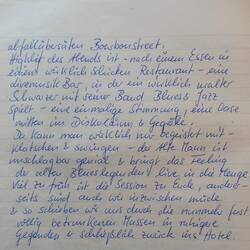 abfallübersäten Bourbonstreet.
Highlight des Abends ist - nach einem Essen in
einem wirklich schicken Restaurant - eine
Livemusik Bar, in der ein wirklich uralter
Schwarzer mit seiner Band Blues & Jazz
spielt - eine einmalige Stimmung, eine Oase
mitten im Diskolärm & Gegröle.
Da kann man wirklich nur begeistert mit-
klatschen & swingen - der Alte Mann ist
unschlagbar genial & bringt das Feeling
der alten Blueslegenden live in die Menge
Viel zu früh ist die Session zu Ende, anderer-
seits sind auch wir inzwischen müde
& so schieben wir uns durch die nunmehr fast
völlig betrunkenen Massen in ruhigere
Gegenden & schließlich zurück ins Hotel.